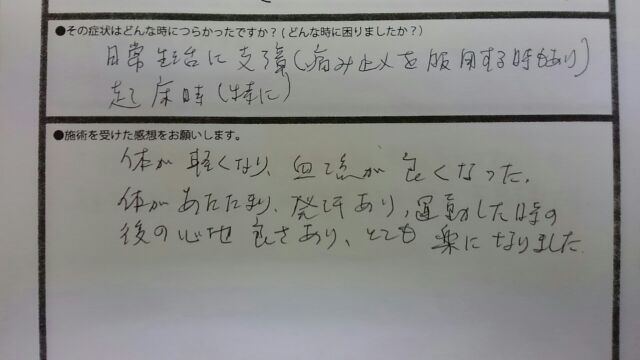 ●その症状はどんな時につらかったですか?(どんな時に困りましたか?)
日常生活に支障(痛み止めを服用する時もあり)
起床時(特に)
●施術を受けた感想をお願いします。
体が軽くなり、血流が良くなった。
体があたたまり、発汗あり、運動した時の
後の心地良さあり、とても楽になりました